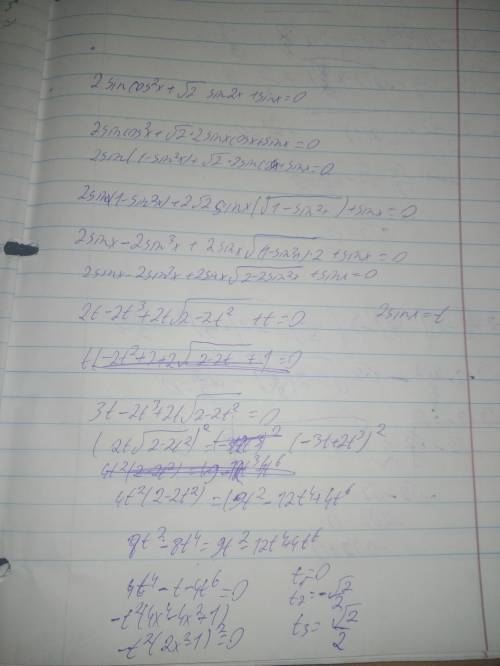 2sincos²x + √2 sin2x + sinx = 0
2sincos²x + √2·2sinxcosx + sinx = 0
2sin(1-sin²x) + √2·2sincosx + sinx = 0
2sinx(1-sin²x) + 2√2 sinx(√1-sin²x) + sinx = 0
2sinx - 2sin³x + 2sinx√(1-sin²x)·2 + sinx = 0
2sinx - 2sin³x + 2sinx√2-2sin²x + sinx = 0
2t - 2t³ + 2t√2-2t² + t = 0 2sinx = t
t(-2t²+2+2√2-2t +1) = 0
3t - 2t³ + 2t√2-2t² = 0
(2t√2-2t²)² = (-3t+2t³)²
4t²(2-2t²) = (9t² - 12t⁴ + 4t⁶
8t² - 8t⁴ = 9t² - 12t⁴ + 4t⁶
4t⁴ - t - 4t⁶ = 0 t₁ = 0
-t²(4x⁴-4x²+1) t₂ = -√2/2
-t²(2x²-1)² = 0 t₃ = √2/2